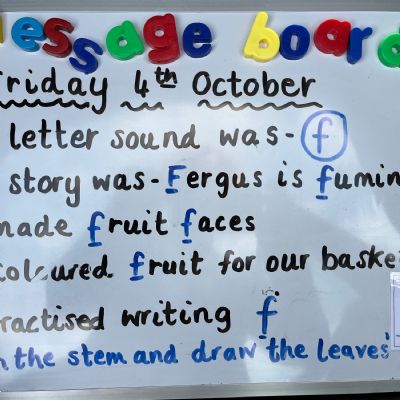 message board
Friday 4th October
letter sound was- f
story was- Fergus is fumin
made fruit faces
coloured fruit for our baske
ractised writing f
the stem and draw the leaves'